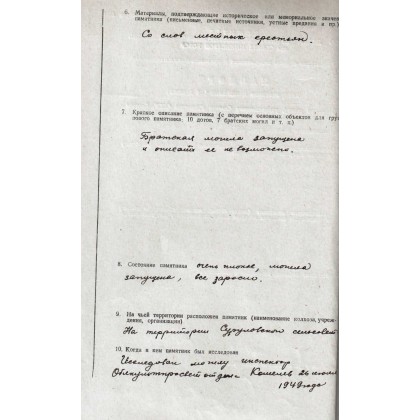 6. Материалы, подтверждающие историческое или мемориальное значе
памятника (письменные, печатные источники, устные предания и пр.)
Со слов местных крестьян.
7. Краткое описание памятника (с перечнем основных объектов для груп
пового памятника. 10 дотов, 7 братских могил и т. п.)
Братская могила запущена
и описать ее невозможно.
8. Состояние памятника очень плохое, могила
запущена, все заросло.
9. На чьей территории расположен памятник (наименование колхоза, учреж
дения, организации)
На территории сельсовет
10. Когда и кем памятник был исследован
Исследовал могилу инспектор
Облкультпросветотдела 26 июля
1949 года